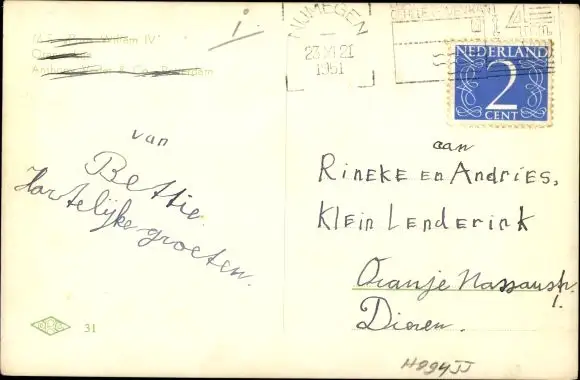 M.S. "Prins Willem IV"
Anthony Veder & Co., Rotterdam
NIJMEGEN
23 XI 21
1951
NEDERLAND
2
CENT
van
Bettie.
Hartelijke groeten.
aan
Rineke en Andries,
Klein Lenderink
Oranje Nassaustr.
1.
Dieren.
31